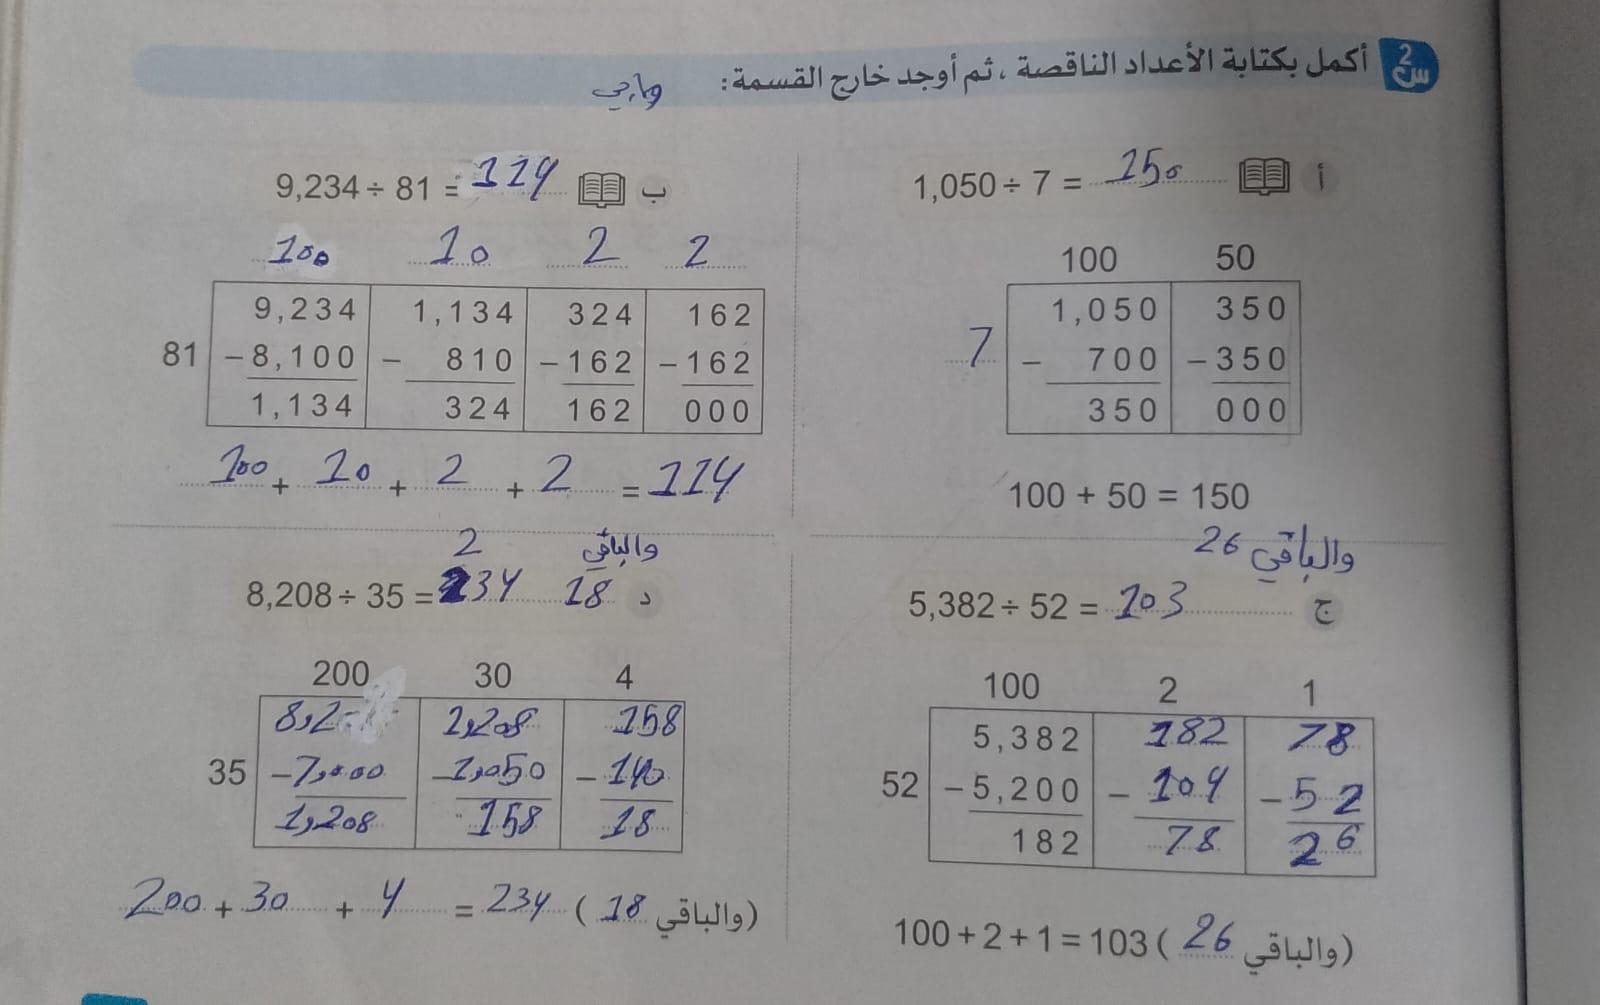 س2 أكمل بكتابة الأعداد الناقصة ، ثم أوجد خارج القسمة :
أ 1,050 ÷ 7 = 150
100 50
7
1,050 350
- 700 - 350
350 000
100 + 50 = 150
ب 9,234 ÷ 81 = 114
100 10 2 2
81
9,234 1,134 324 162
- 8,100 - 810 - 162 - 162
1,134 324 162 000
100 + 10 + 2 + 2 = 114
والباقي 26
ج 5,382 ÷ 52 = 103
100 2 1
52
5,382 182 78
- 5,200 - 104 - 52
182 78 26
100 + 2 + 1 = 103 ( والباقي 26 )
2 والباقي
د 8,208 ÷ 35 = 234 18
200 30 4
35
1,208 158
- 7,000 - 1,050 - 140
1,208 158 18
200 + 30 + 4 = 234 ( والباقي 18 )